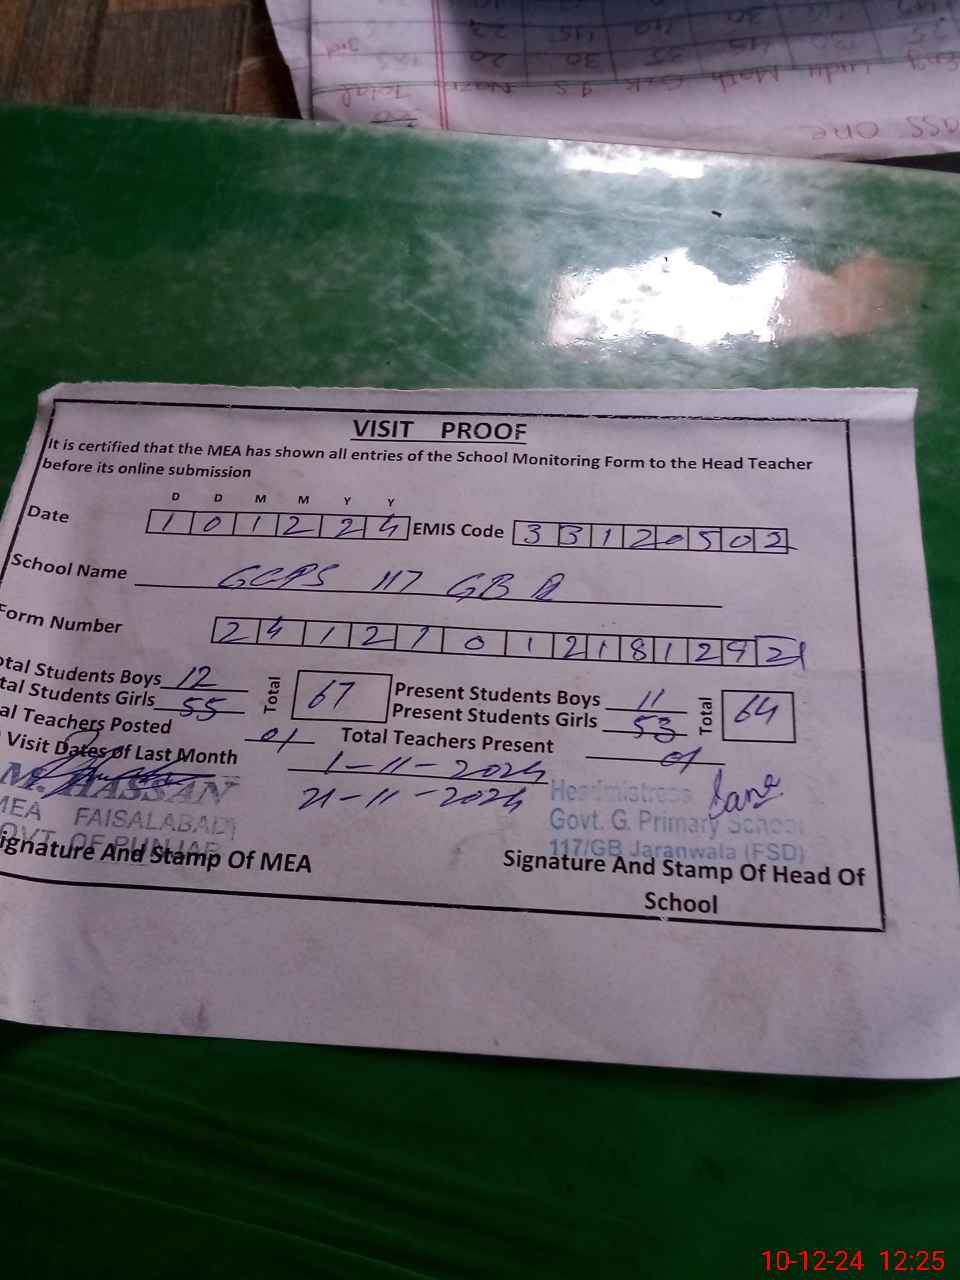 Total
VISIT PROOF
It is certified that the MEA has shown all entries of the School Monitoring Form to the Head Teacher
before its online submission
D D M M Y Y
Date 1 0 1 2 2 4 EMIS Code 3 3 1 2 0 5 0 2
School Name GGPS 117 GB
Form Number 2 4 1 2 1 0 1 2 1 8 1 2 9 2
otal Students Boys 12 Total 67 Present Students Boys 11 Total 64
tal Students Girls 55 Present Students Girls 53
al Teachers Posted 01 Total Teachers Present 01
Visit Dates of Last Month 1-11-2024
21-11-2024
M. HASSAN
MEA FAISALABAD
GOVT. OF PUNJAB
Headmistress
Govt. G. Primary School
117/GB Jaranwala (FSD)
ignature And Stamp Of MEA
Signature And Stamp Of Head Of
School
10-12-24 12:25